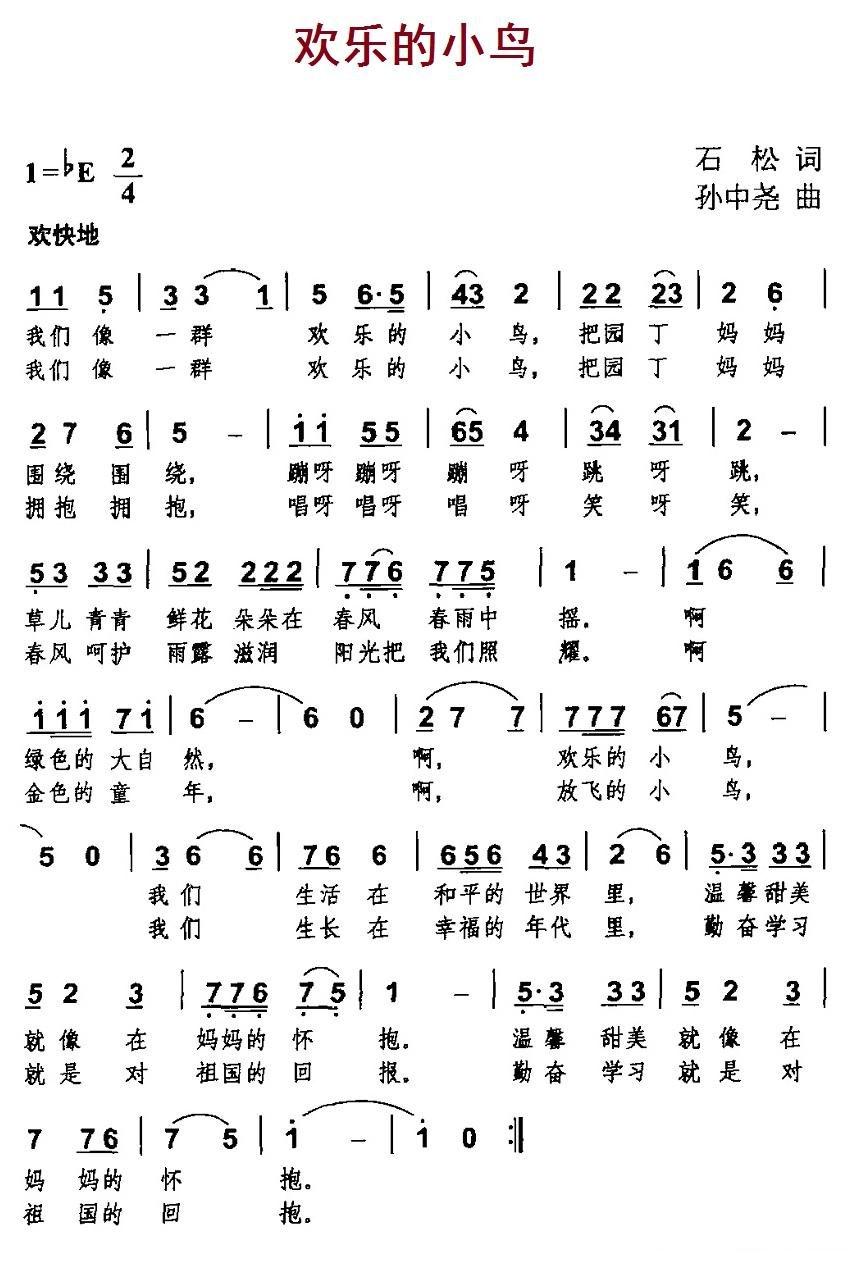 欢乐的小鸟
1=♭E 2/4
石 松 词
孙中尧 曲
欢快地
1 1 5 | 3 3 1 | 5 6·5 | 43 2 | 22 23 | 2 6 |
我们 像 一 群 欢 乐 的 小 鸟, 把园 丁 妈 妈
我们 像 一 群 欢 乐 的 小 鸟, 把园 丁 妈 妈
2 7 6 | 5 – | i i 5 5 | 65 4 | 34 31 | 2 – |
围 绕 围 绕, 蹦呀 蹦呀 蹦 呀 跳 呀 跳,
拥 抱 拥 抱, 唱呀 唱呀 唱 呀 笑 呀 笑,
53 33 | 52 222 | 776 775 | 1 – | 1 6 6 |
草儿 青青 鲜花 朵朵在 春风 春雨中 摇. 啊
春风 呵护 雨露 滋润 阳光把 我们照 耀. 啊
i i i 7 i | 6 – | 6 0 | 2 7 7 | 777 67 | 5 – |
绿色的 大自 然, 啊, 欢乐的 小 鸟,
金色的 童 年, 啊, 放飞的 小 鸟,
5 0 | 3 6 6 | 76 6 | 656 43 | 2 6 | 5·3 33 |
我 们 生活 在 和平的 世界 里, 温 馨 甜美
我 们 生长 在 幸福的 年代 里, 勤 奋 学习
5 2 3 | 776 75 | 1 – | 5·3 33 | 5 2 3 |
就 像 在 妈妈的 怀 抱. 温 馨 甜美 就 像 在
就 是 对 祖国的 回 报. 勤 奋 学习 就 是 对
7 76 | 7 5 | i – | i 0 :‖
妈 妈的 怀 抱.
祖 国的 回 抱.